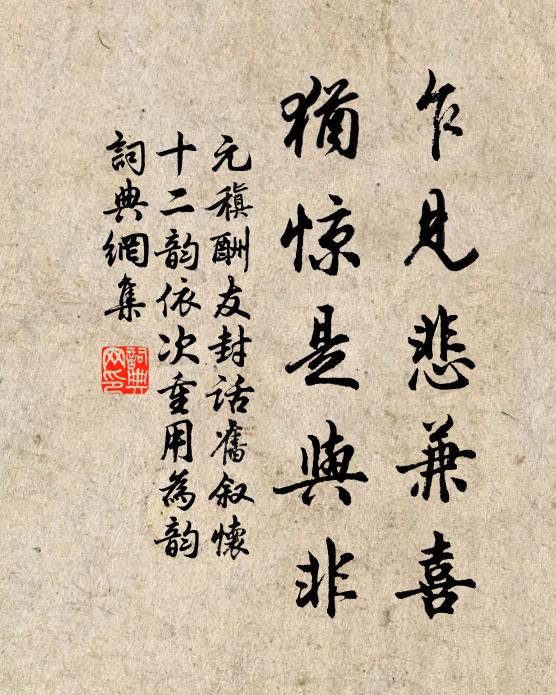 乍見悲兼喜
猶惊是與非
元稹酬友封話舊叙懷
十二韵依次重用為韵
詞典網集
詞典網印